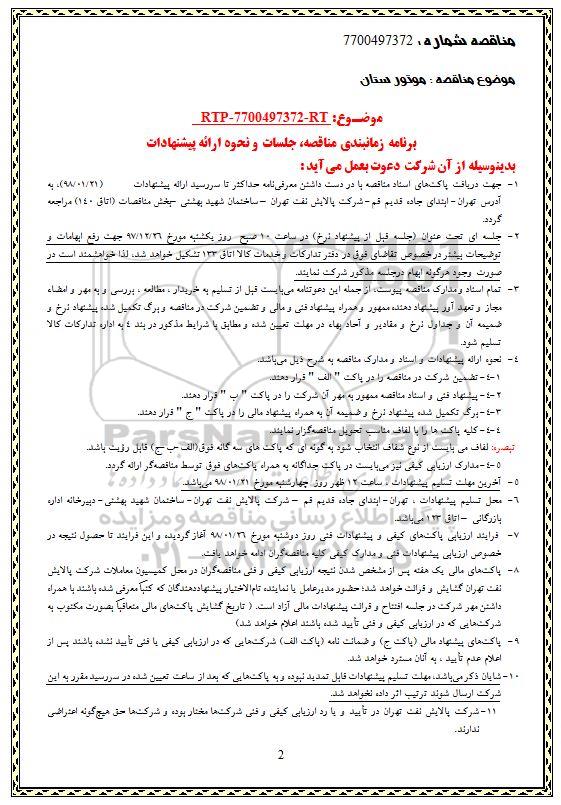 مناقصه شماره : 7700497372
موضوع مناقصه : موتور ستان
موضـوع: RTP-7700497372-RT
برنامه زمانبندی مناقصه، جلسات و نحوه ارائه پیشنهادات
بدینوسیله از آن شرکت دعوت بعمل می آید :
۱- جهت دریافت پاکت‌های اسناد مناقصه با در دست داشتن معرفی‌نامه حداکثر تا سررسید ارائه پیشنهادات (۹۸/۰۱/۲۱)، به
آدرس تهران - ابتدای جاده قدیم قم - شرکت پالایش نفت تهران – ساختمان شهید بهشتی - بخش مناقصات (اتاق ۱۴۰) مراجعه
گردد.
۲- جلسه ای تحت عنوان (جلسه قبل از پیشنهاد نرخ) در ساعت ۱۰ صبح روز یکشنبه مورخ ۹۷/۱۲/۲۶ جهت رفع ابهامات و
توضیحات بیشتر در خصوص تقاضای فوق در دفتر تدارکات و خدمات کالا اتاق ۱۳۳ تشکیل خواهد شد، لذا خواهشمند است در
صورت وجود هرگونه ابهام درجلسه مذکور شرکت نمایند.
۳- تمام اسناد و مدارک مناقصه پیوست، از جمله این دعوتنامه می‌بایست قبل از تسلیم به خریدار ، مطالعه ، بررسی و به مهر و امضاء
مجاز و تعهد آور پیشنهاد دهنده ممهور و همراه پیشنهاد فنی و مالی و تضمین شرکت در مناقصه و برگ تکمیل شده پیشنهاد نرخ و
ضمیمه آن و جداول نرخ و مقادیر و آحاد بهاء در مهلت تعیین شده و مطابق با شرایط مذکور در بند ٤ به اداره تدارکات کالا
تسلیم شود.
٤- نحوه ارائه پیشنهادات و اسناد و مدارک مناقصه به شرح ذیل می‌باشد.
٤-۱- تضمین شرکت در مناقصه را در پاکت " الف " قرار دهند.
٤-۲- پیشنهاد فنی و اسناد مناقصه ممهور به مهر آن شرکت را در پاکت " ب " قرار دهند.
٤-۳- برگ تکمیل شده پیشنهاد نرخ و ضمیمه آن به همراه پیشنهاد مالی را در پاکت " ج " قرار دهند.
٤-٤- کلیه پاکت ها را با لفاف مناسب تحویل مناقصه‌گزار نمایند.
تبصره: لفاف می بایست از نوع شفاف انتخاب شود به گونه ای که پاکت های سه گانه فوق(الف-ب-ج) قابل رؤیت باشد.
٤-۵- مدارک ارزیابی کیفی نیز می‌بایست در پاکت جداگانه به همراه پاکت‌های فوق توسط مناقصه‌گر ارائه گردد.
۵- آخرین مهلت تسلیم پیشنهادات ، ساعت ۱۲ ظهر روز چهارشنبه مورخ ۹۸/۰۱/۲۱ می‌باشد.
۶- محل تسلیم پیشنهادات ، تهران - ابتدای جاده قدیم قم – شرکت پالایش نفت تهران - ساختمان شهید بهشتی - دبیرخانه اداره
بازرگانی – اتاق ۱۲۳ می‌باشد.
۷- فرایند ارزیابی پاکت‌های کیفی و پیشنهادات فنی روز دوشنبه مورخ ۹۸/۰۱/۲۶ آغاز گردیده و این فرایند تا حصول نتیجه در
خصوص ارزیابی پیشنهادات فنی و مدارک کیفی کلیه مناقصه‌گران ادامه خواهد یافت.
۸- پاکت‌های مالی یک هفته پس از مشخص شدن نتیجه ارزیابی کیفی و فنی مناقصه‌گران در محل کمیسیون معاملات شرکت پالایش
نفت تهران گشایش و قرائت خواهد شد؛ حضور مدیرعامل یا نماینده تام‌الاختیار پیشنهاددهندگان که کتباً معرفی شده باشند با همراه
داشتن مهر شرکت در جلسه افتتاح و قرائت پیشنهادات مالی آزاد است. ( تاریخ گشایش پاکت‌های مالی متعاقباً بصورت مکتوب به
شرکت‌هایی که در ارزیابی کیفی و فنی تأیید شده باشند اعلام خواهد شد)
۹- پاکت‌های پیشنهاد مالی (پاکت ج) و ضمانت نامه (پاکت الف) شرکت‌هایی که در ارزیابی کیفی یا فنی تأیید نشده باشند پس از
اعلام عدم تأیید ، به آنان مسترد خواهد شد.
۱۰- شایان ذکر می‌باشد، مهلت تسلیم پیشنهادات قابل تمدید نبوده و به پاکت‌هایی که بعد از ساعت تعیین شده در سررسید مقرر به این
شرکت ارسال شوند ترتیب اثر داده نخواهد شد.
۱۱- شرکت پالایش نفت تهران در تأیید و یا رد ارزیابی کیفی و فنی شرکت‌ها مختار بوده و شرکت‌ها حق هیچ‌گونه اعتراضی
ندارند.
2
ParsNamadData
پایگاه اطلاع رسانی مناقصه و مزایده